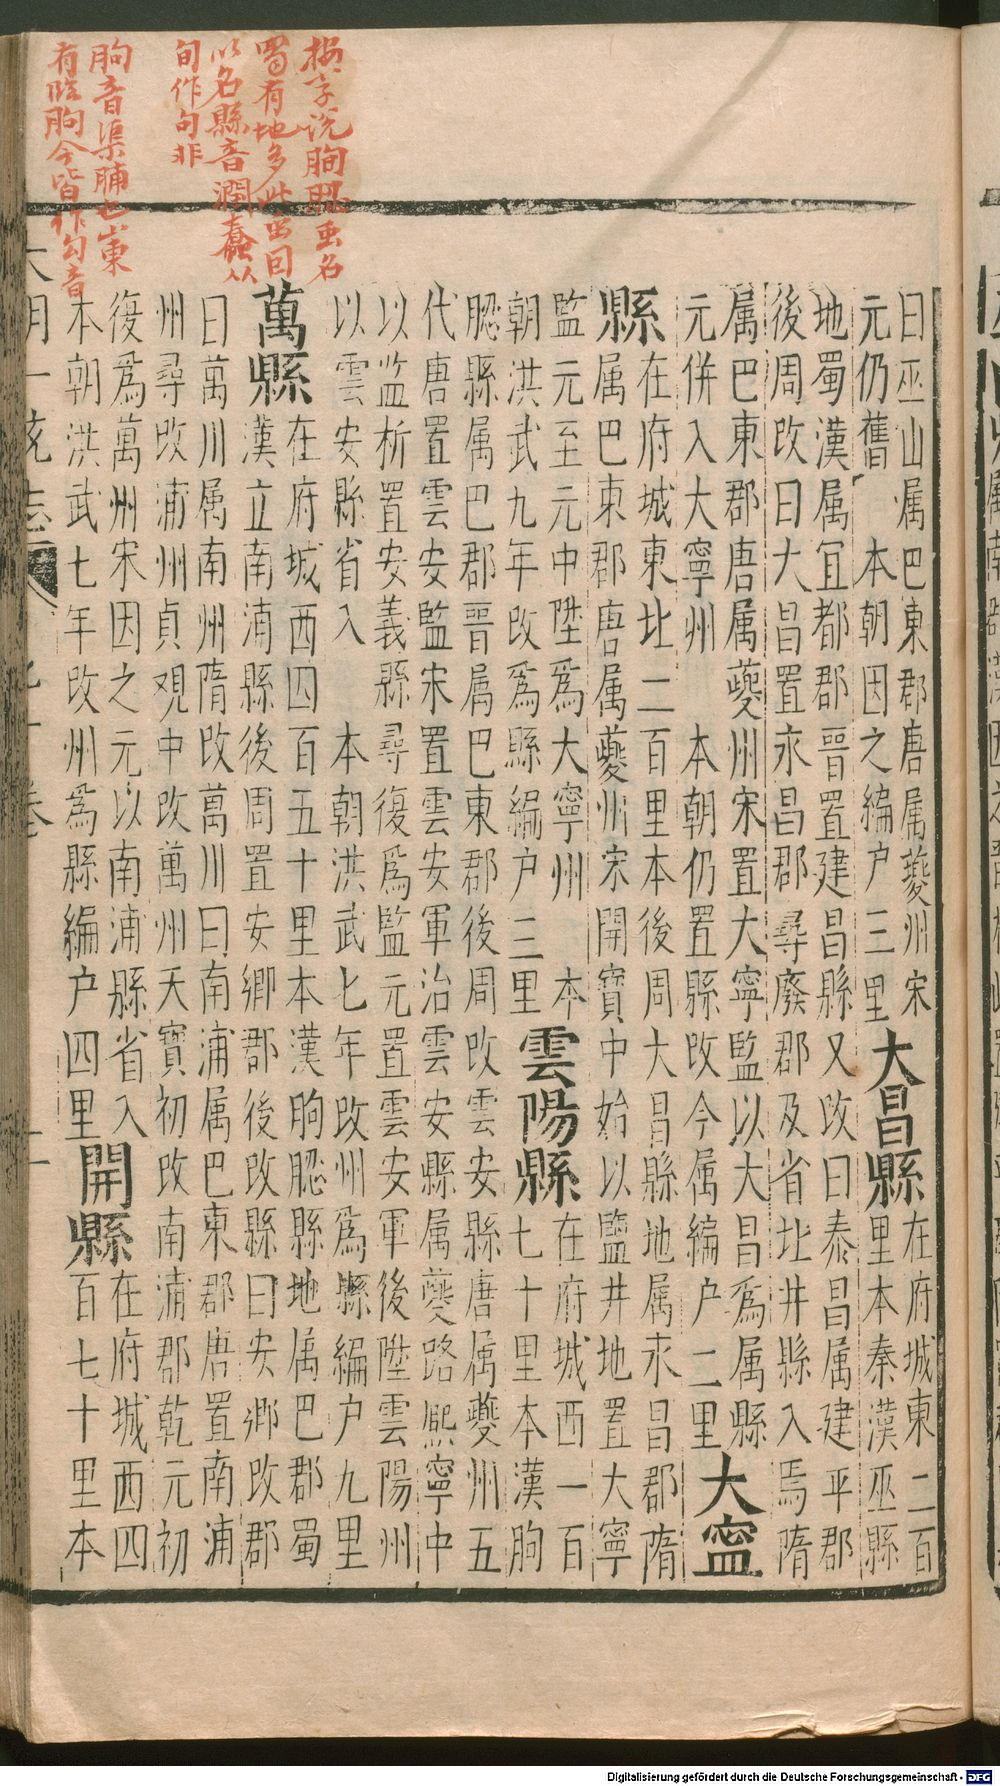 按字说朐䏰虫名
蜀有地多此虫因
以名縣音潤蠢从
旬作句非
朐音渠脯也山東
有临朐今皆作勾音
曰巫山属巴東郡唐属夔州宋
元仍舊　本朝因之編户三里
大昌縣
在府城東二百
里本秦漢巫縣
地蜀漢属宜都郡晋置建昌縣又改曰泰昌属建平郡
後周改曰大昌置永昌郡尋廢郡及省北井縣入焉隋
属巴東郡唐属夔州宋置大寧監以大昌為属縣
元併入大寧州　本朝仍置縣改今属編户二里
大寧
縣
在府城東北二百里本後周大昌縣地属永昌郡隋
属巴東郡唐属夔州宋開寶中始以鹽井地置大寧
監元至元中陞為大寧州　本
朝洪武九年改為縣編户三里
雲陽縣
在府城西一百
七十里本漢朐
䏰縣属巴郡晋属巴東郡後周改雲安縣唐属夔州五
代唐置雲安監宋置雲安軍治雲安縣属夔路熈寧中
以监析置安義縣尋復為監元置雲安軍後陞雲陽州
以雲安縣省入　本朝洪武七年改州為縣編户九里
萬縣
在府城西四百五十里本漢朐䏰縣地属巴郡蜀
漢立南浦縣後周置安鄉郡後改縣曰安鄉改郡
曰萬川属南州隋改萬川曰南浦属巴東郡唐置南浦
州尋改浦州貞观中改萬州天寶初改南浦郡乾元初
復為萬州宋因之元以南浦縣省入
本朝洪武七年改州為縣編户四里
開縣
在府城西四
百七十里本
大明一統志
Digitalisierung gefördert durch die Deutsche Forschungsgemeinschaft - DFG